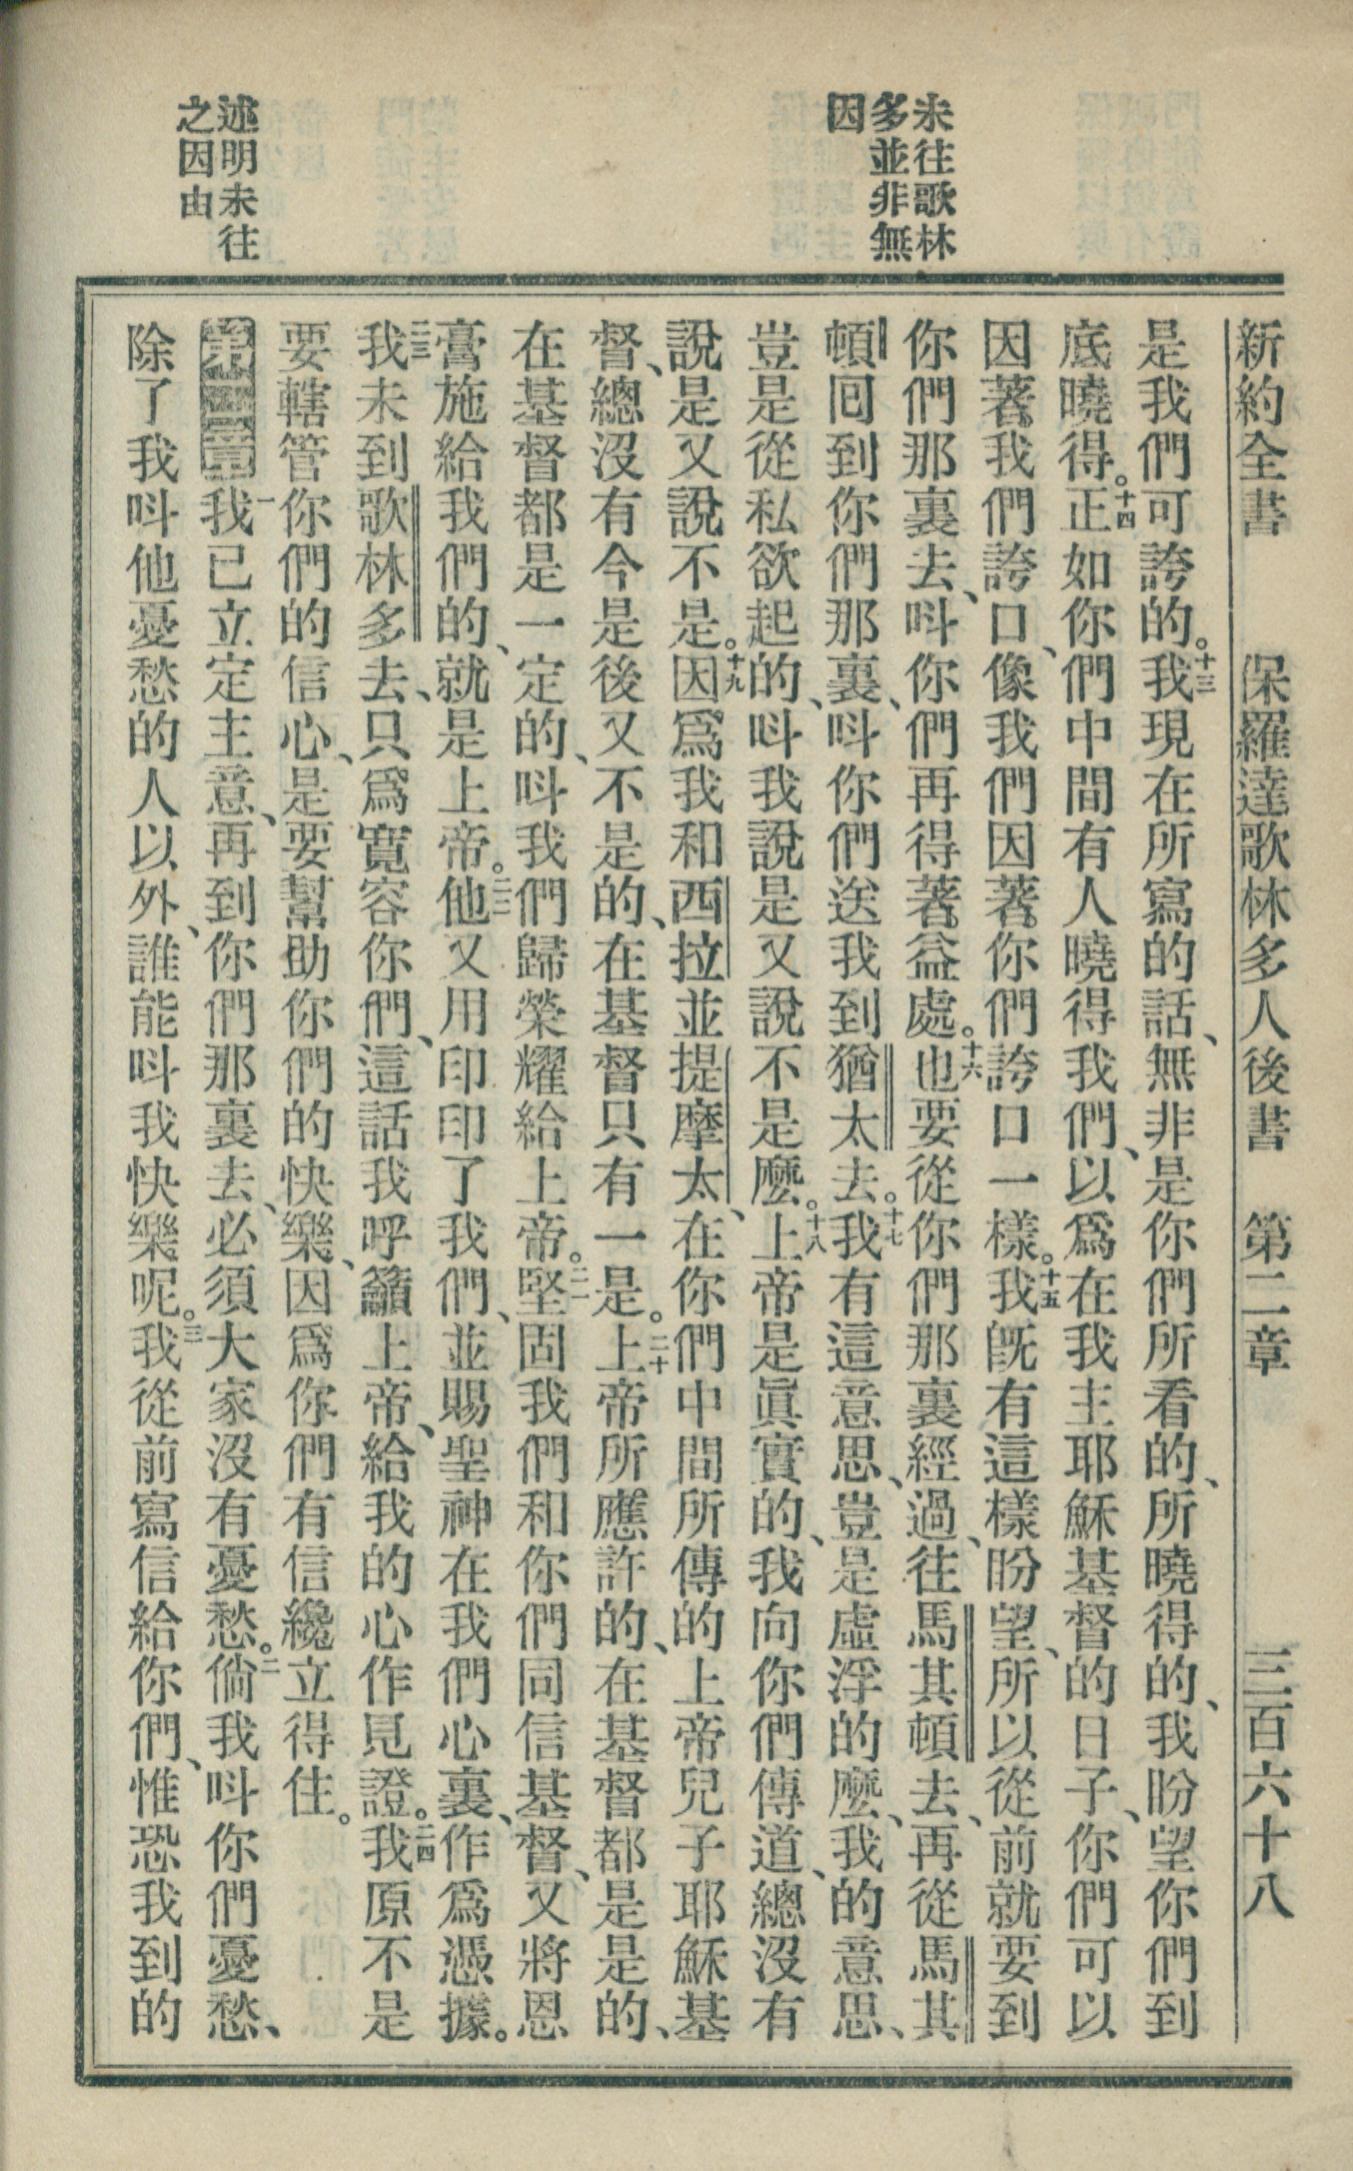 未往歌林
多並非無
因
述明未往
之因由
新約全書 保羅達歌林多人後書 第二章 三百六十八
是我們可誇的。十三我現在所寫的話、無非是你們所看的、所曉得的、我盼望你們到
底曉得。十四正如你們中間有人曉得我們、以爲在我主耶穌基督的日子、你們可以
因著我們誇口、像我們因著你們誇口一樣。十五我旣有這樣盼望、所以從前就要到
你們那裏去、呌你們再得著益處。十六也要從你們那裏經過、往馬其頓去、再從馬其
頓囘到你們那裏、呌你們送我到猶太去。十七我有這意思、豈是虛浮的麼、我的意思、
豈是從私欲起的、呌我說是又說不是麼。十八上帝是眞實的、我向你們傳道、總沒有
說是又說不是。十九因爲我和西拉並提摩太、在你們中間所傳的上帝兒子耶穌基
督、總沒有今是後又不是的、在基督只有一是。二十上帝所應許的、在基督都是是的、
在基督都是一定的、呌我們歸榮耀給上帝。二一堅固我們和你們同信基督、又將恩
膏施給我們的、就是上帝。二二他又用印印了我們、並賜聖神在我們心裏、作爲憑據。
二三我未到歌林多去、只爲寬容你們、這話我呼籲上帝、給我的心作見證。二四我原不是
要轄管你們的信心、是要幫助你們的快樂、因爲你們有信纔立得住。
第二章一我已立定主意、再到你們那裏去、必須大家沒有憂愁。二倘我呌你們憂愁、
除了我呌他憂愁的人以外、誰能呌我快樂呢。三我從前寫信給你們、惟恐我到的